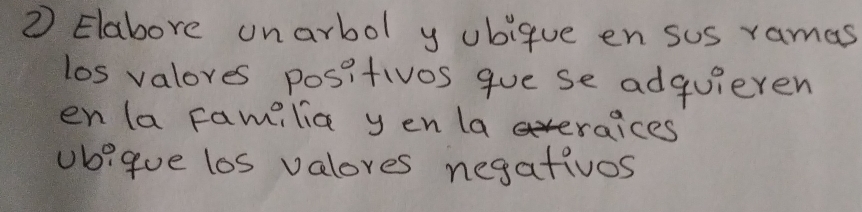 2) Elabore un arbol y ubique en sus ramas
los valores positivos que se adquieren
en la familia y en la raices
ubique los valores negativos